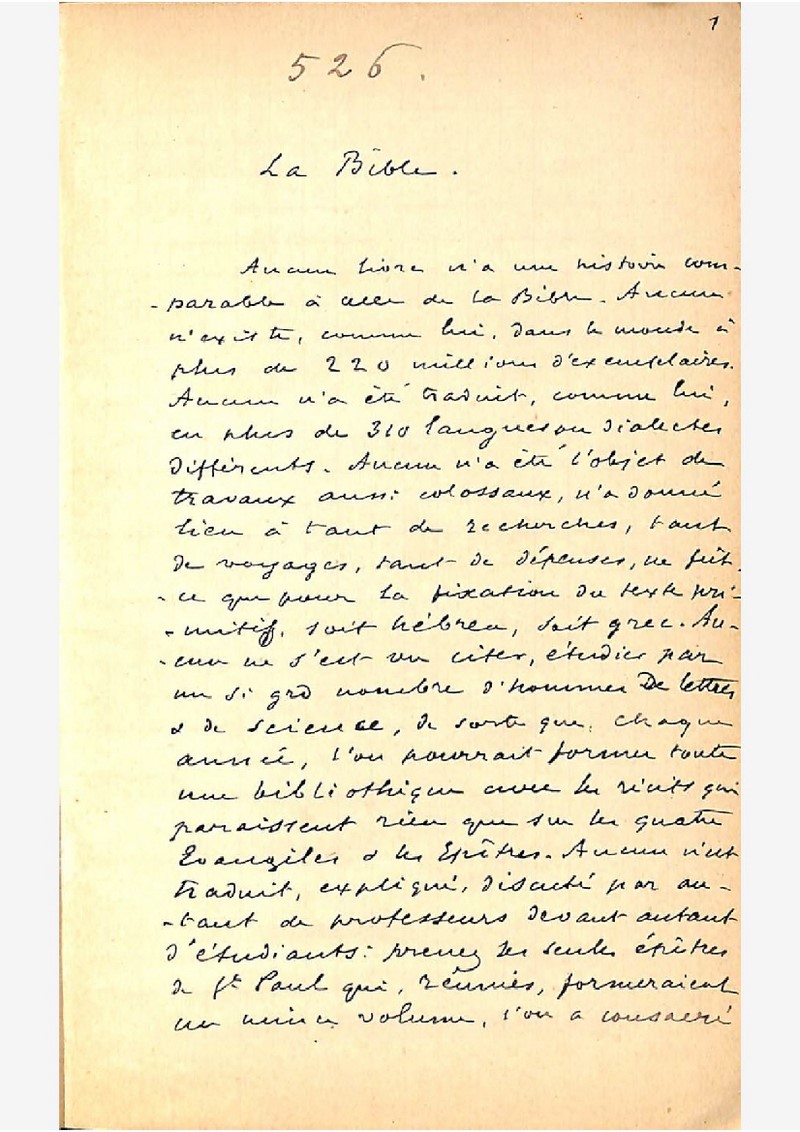 1
526.
La Bible.
Aucun livre n'a une histoire com-
-parable à celle de la Bible. Aucun
n'existe, comme lui, dans le monde à
plus de 220 millions d'exemplaires.
Aucun n'a été traduit, comme lui,
en plus de 310 langues ou dialectes
différents. Aucun n'a été l'objet de
travaux aussi colossaux, n'a donné
lieu à tant de recherches, tant
de voyages, tant de dépenses, ne fût-
-ce que pour la fixation du texte pri-
-mitif, soit hébreu, soit grec. Au-
-cun ne s'est vu citer, étudier par
un si grd nombre d'hommes De lettres
& de science, de sorte que, chaque
année, l'on pourrait former toute
une bibliothèque avec les récits qui
paraissent rien que sur les quatre
Evangiles & les Epîtres. Aucun n'est
traduit, expliqué, discuté par au-
-tant de professeurs devant autant
d'étudiants: prenez les seules épîtres
de St Paul qui, réunies, formeraient
un mince volume, l'on a consacré